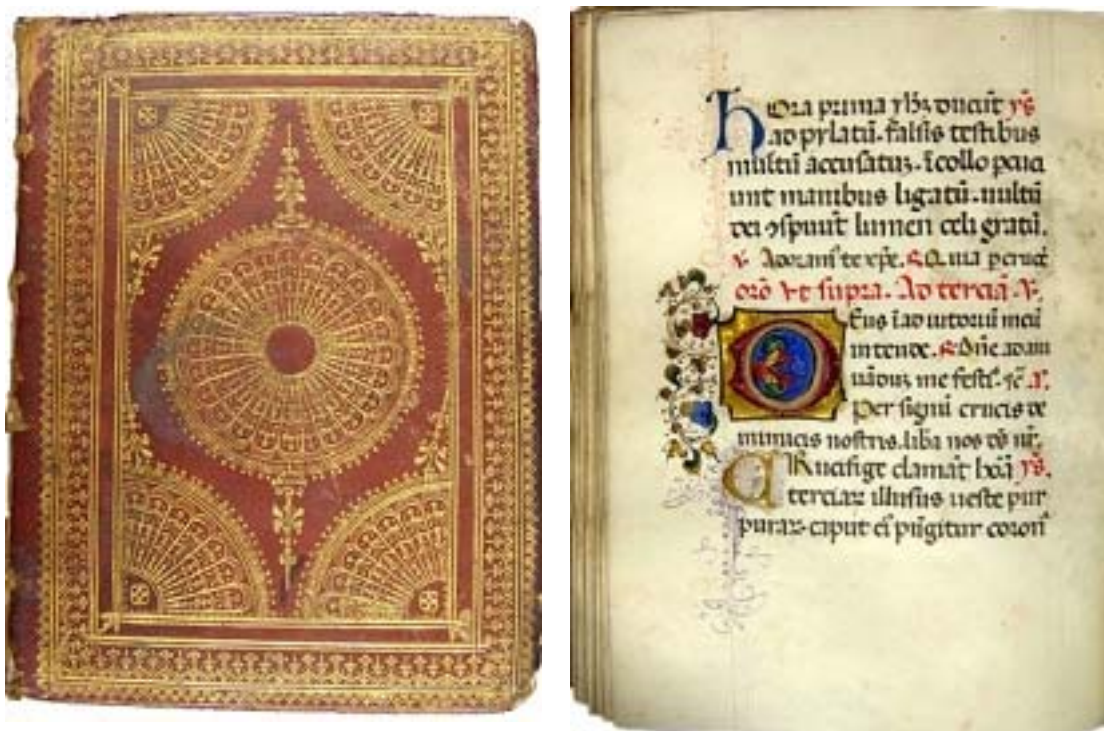 hOra prima yhz ducūt
ad pylatū. falsis testibus
multū accusatuz. ī collo percu
unt manibus ligatū. uultū
dei ɔspuūt lumen celi gratū.
Adoram te xp̄e. Quia per cruc̄
orō vt supra. Ad terciā. V.
DEus ī adiutoriū meū
intende. Dn̄e ad adiu
uāduz me festī.
Per signū crucis de
inimicis nostris. liba nos dš nr̄.
CRucifige clamāt hōā
terciaz illusus ueste pur
puraz. caput ei pūgitur coron̄